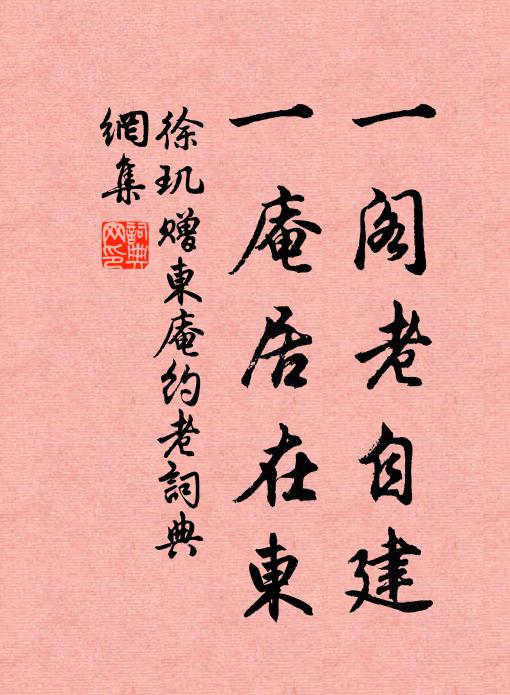 一阁老自建
一庵居在東
徐玑赠東庵约老詞典
網集
詞典
网印